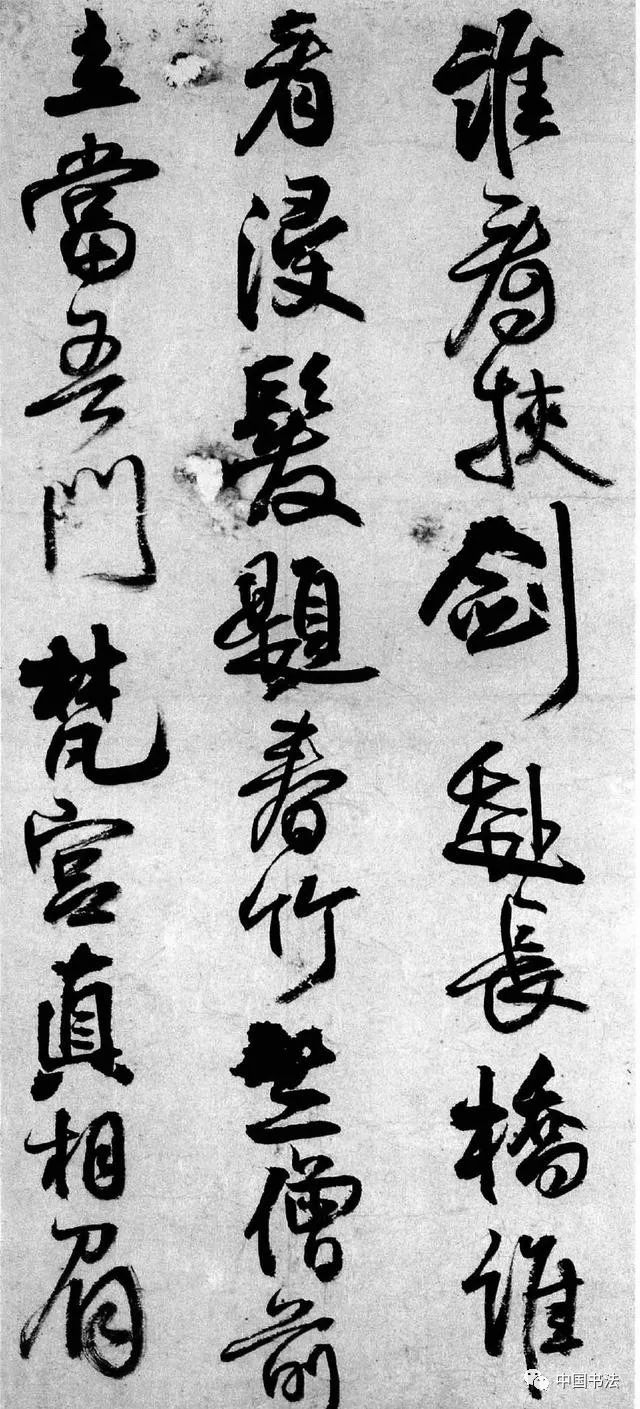 誰看挾劍赴長橋誰
看浸髮題春竹竺僧前
立當吾門梵宮真相眉
中国书法